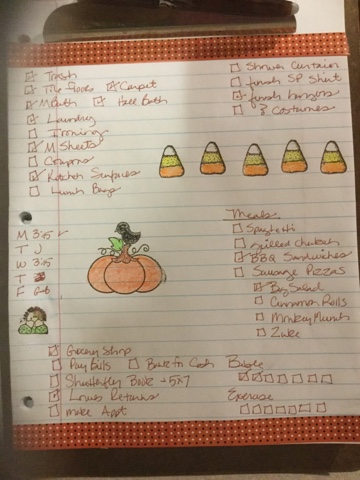 Trash
Tile Floors Carpet
M Bath Hall Bath
Laundry
Ironing
M Sheets
Coupons
Kitchen Surfaces
Lunch Bags
Shower Curtain
finish SP Shirt
finish bangers
Costumes
M 3:15
T J
W 3:15
T
F
Meals
Spaghetti
grilled chicken
BBQ Sandwiches
Sausage Pizzas
Big Salad
Cinnamon Rolls
Monkey Munch
Grocery Shop
Pay Bills Bank for Cash
Shutterfly Book - 5x7
Lowes Returns
make Appt
Bible
Exercise